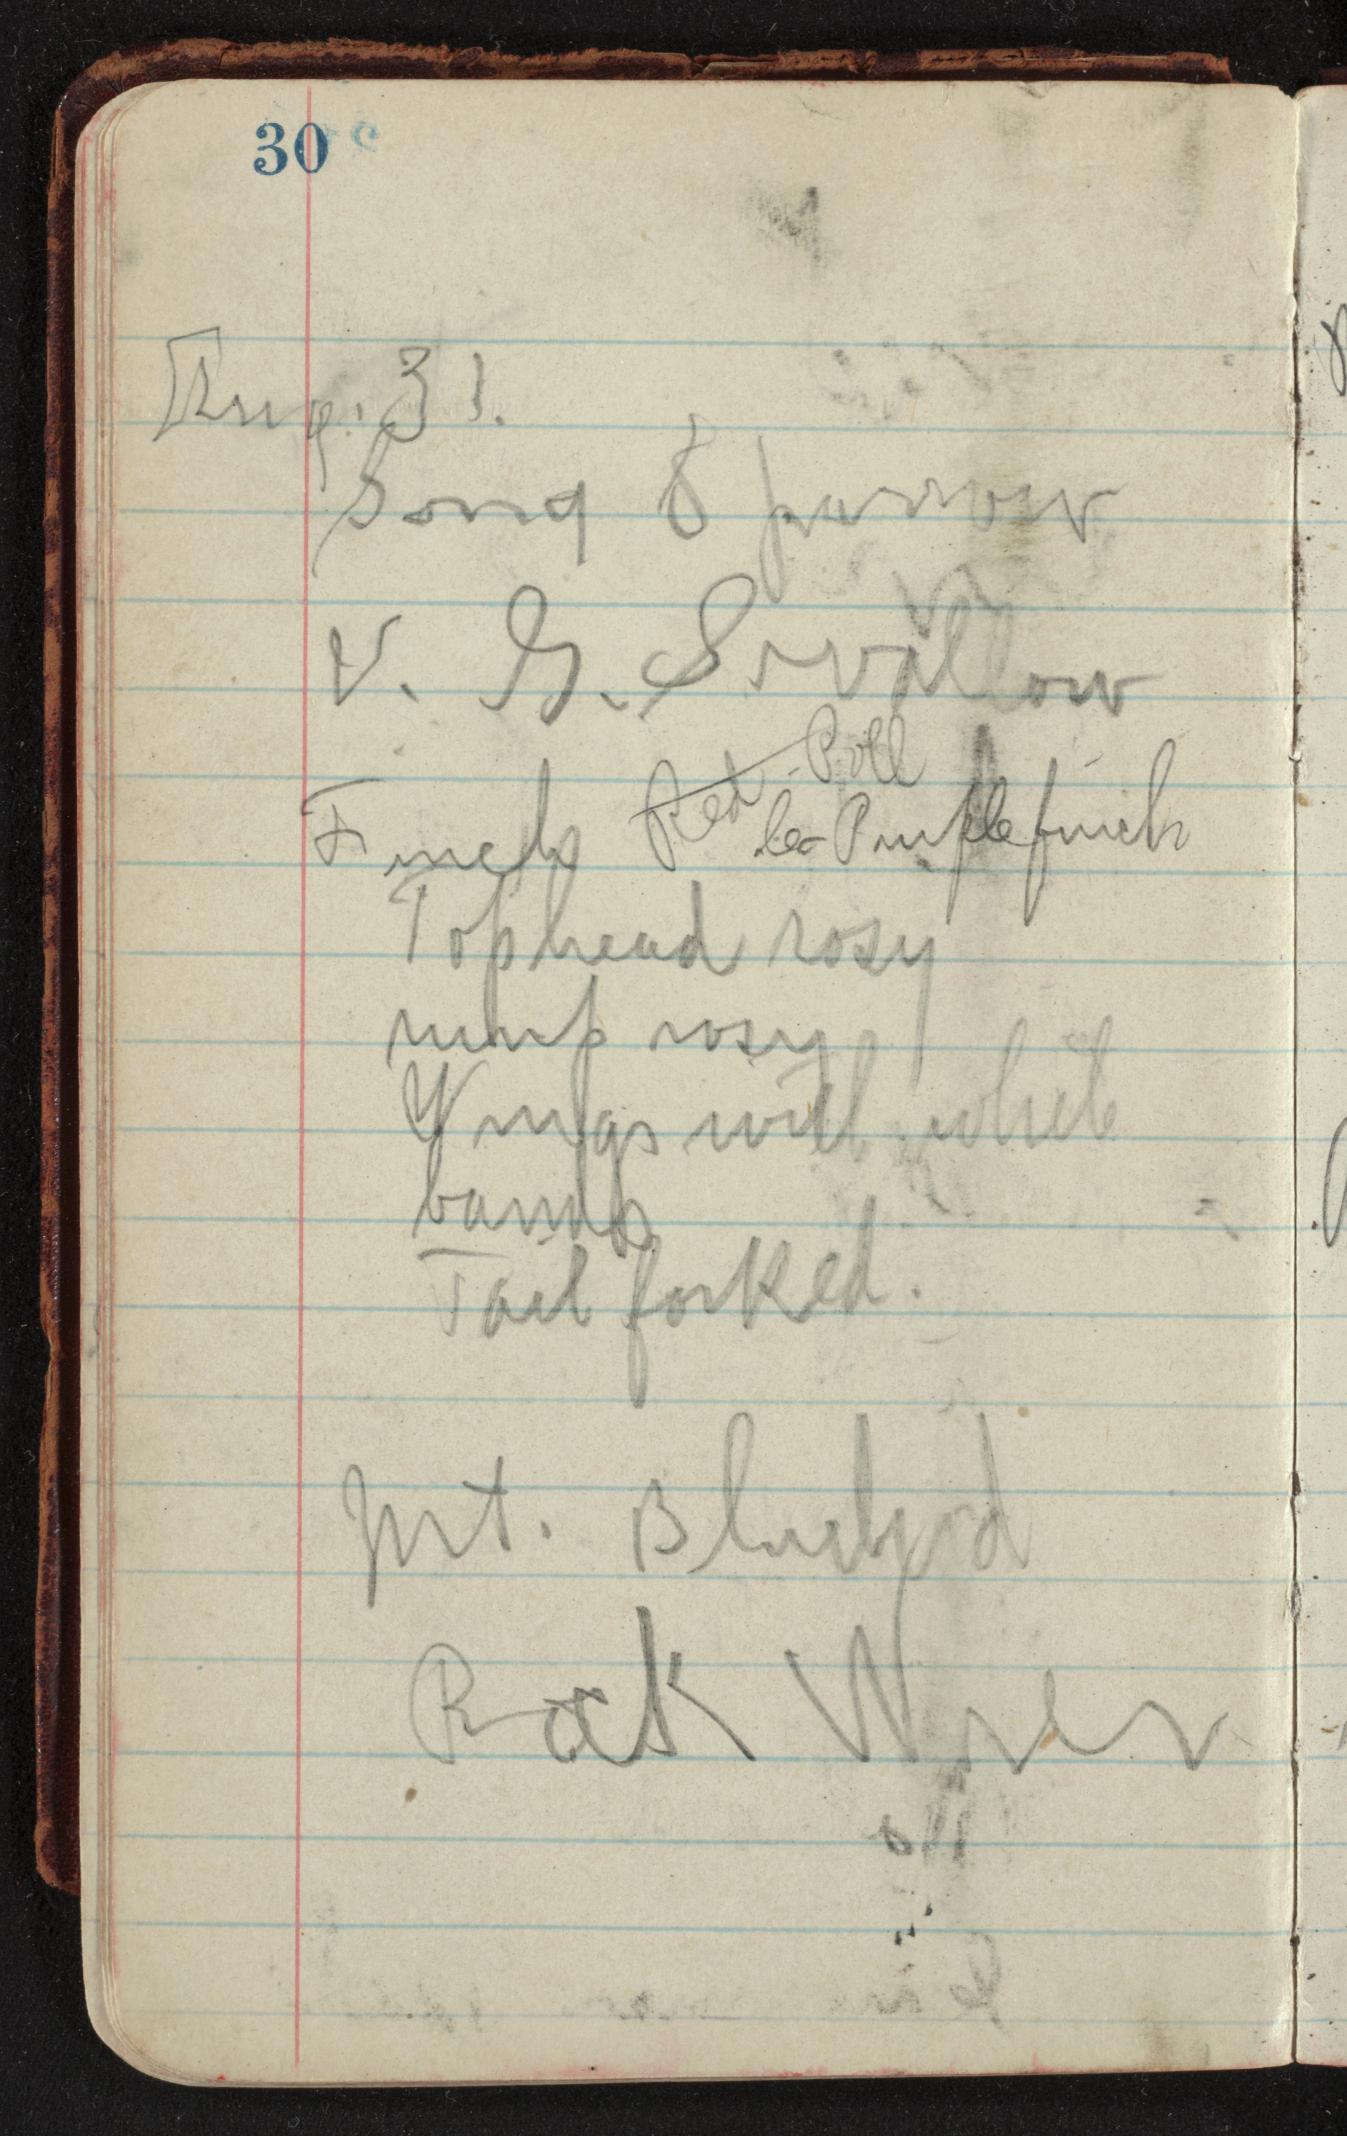 30
Aug. 31.
Song Sparrow
V. G. Swallow
Red-Poll
Finch Purple finch
Top head rosy
rump rosy
Wings with white
bands
Tail forked.
Mt. Bluebird
Rock Wren